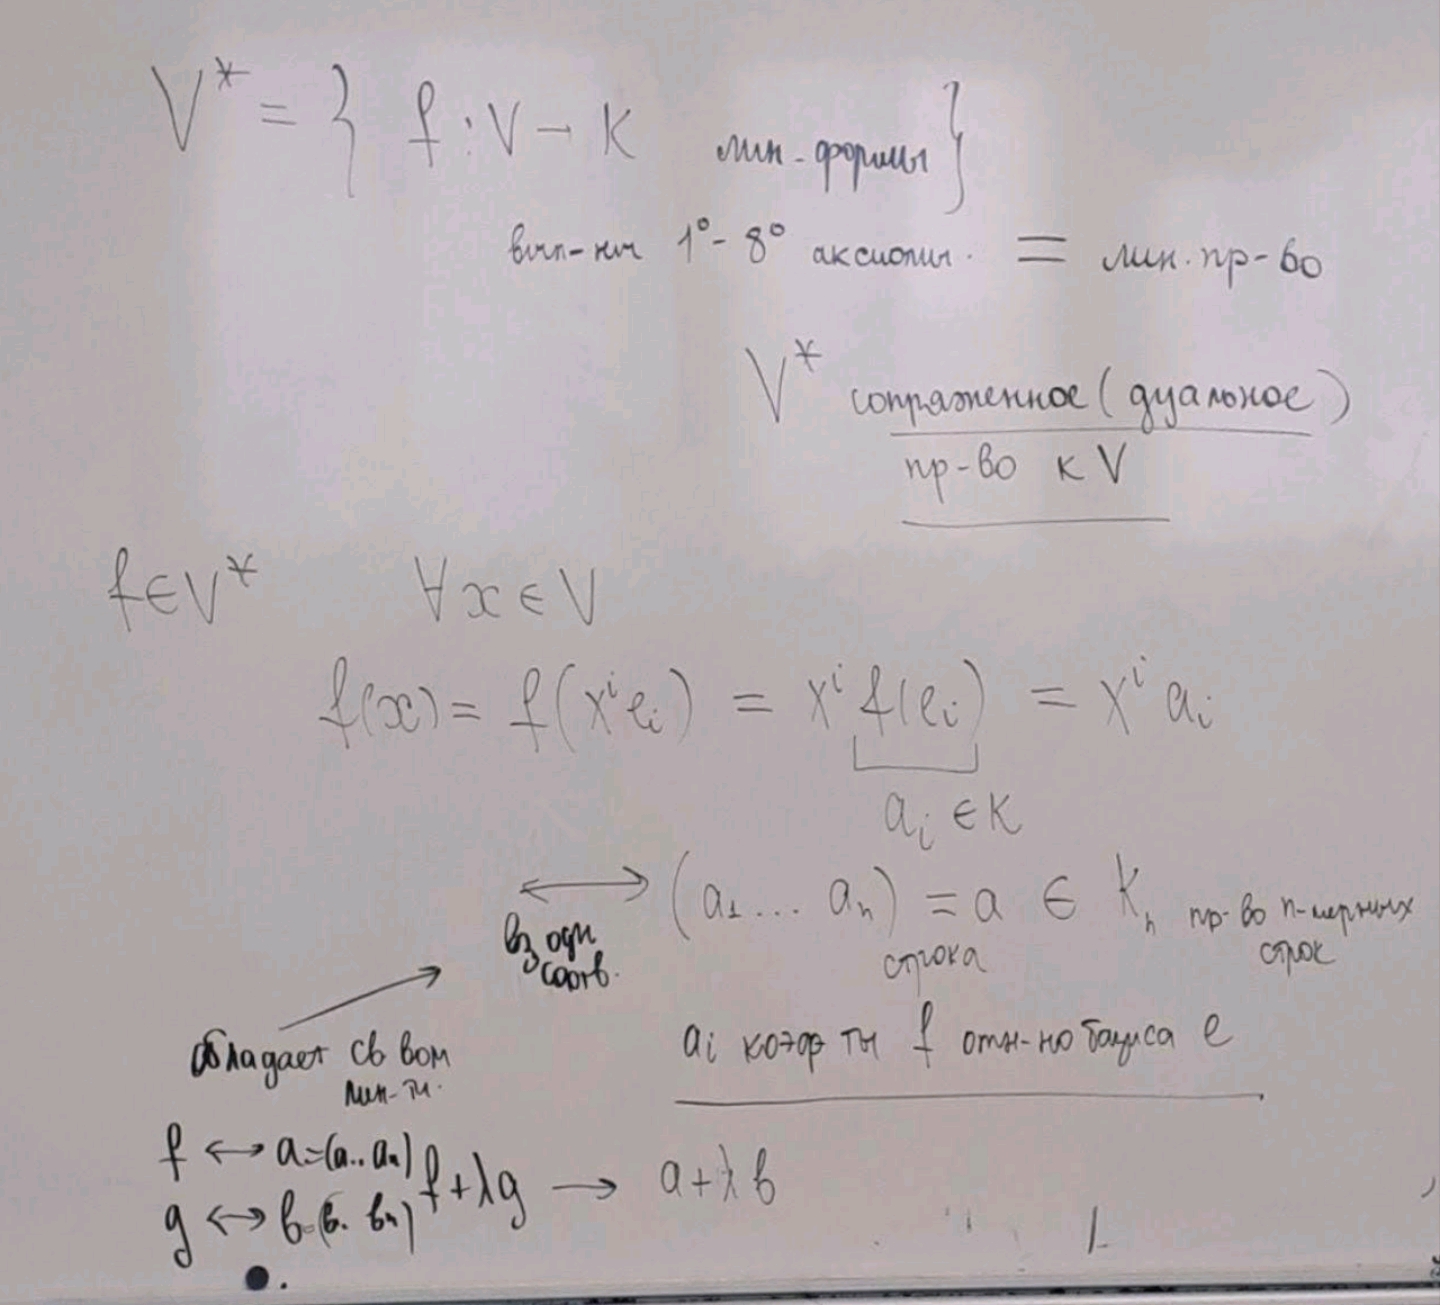 V* = { f : V → K лин. формы }
вып-ны 1° - 8° аксиомы. = лин. пр-во
V* сопряженное (дуальное)
пр-во к V
f ∈ V* ∀ x ∈ V
f(x) = f(xⁱ eᵢ) = xⁱ f(eᵢ) = xⁱ aᵢ
aᵢ ∈ K
↔ (a₁ ... aₙ) = a ∈ Kₙ пр-во n-мерных
строк
строка
вз одн
соотв.
обладает св вом
лин-ти.
aᵢ коорд ты f отн-но базиса e
f ↔ a = (a.. aₙ)
g ↔ b = (b. bₙ)
f + λg → a + λb